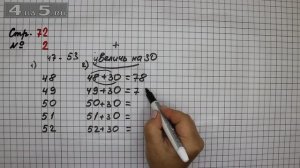 4 НА 5.RU
Стр. 72
№ 2 +
47 - 53 увеличь на 30
1) 2)
48 48+30 = 78
49 49+30 = 7
50 50+30 =
51 51+30 =
52 52+30 =